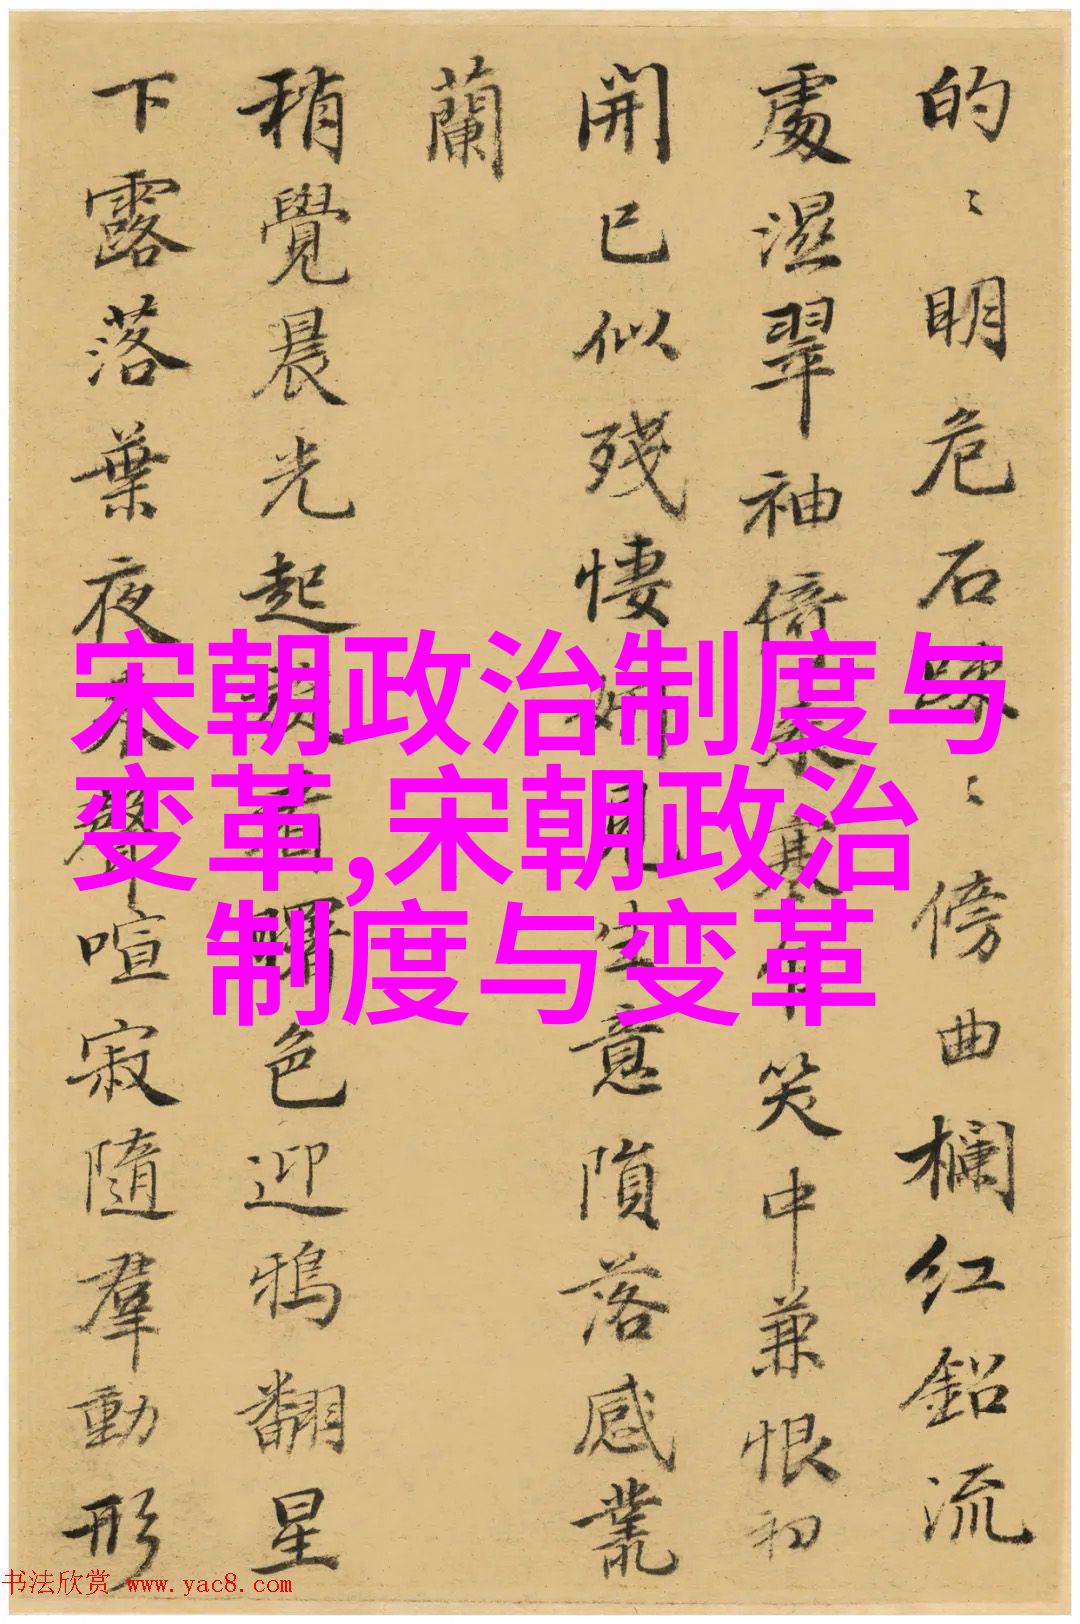 的〻明危石踈〻傍曲欄红鉛流
處濕翠袖倚寒笑中兼恨初
開已似殘悽生意隕落感叢
蘭
稍覺晨光起看曙色迎鴉翻星
下露落葉夜木聲喧寂隨羣動形
宋朝政治制度与
变革,宋朝政治
制度与变革
书法欣赏 www.yac8.com